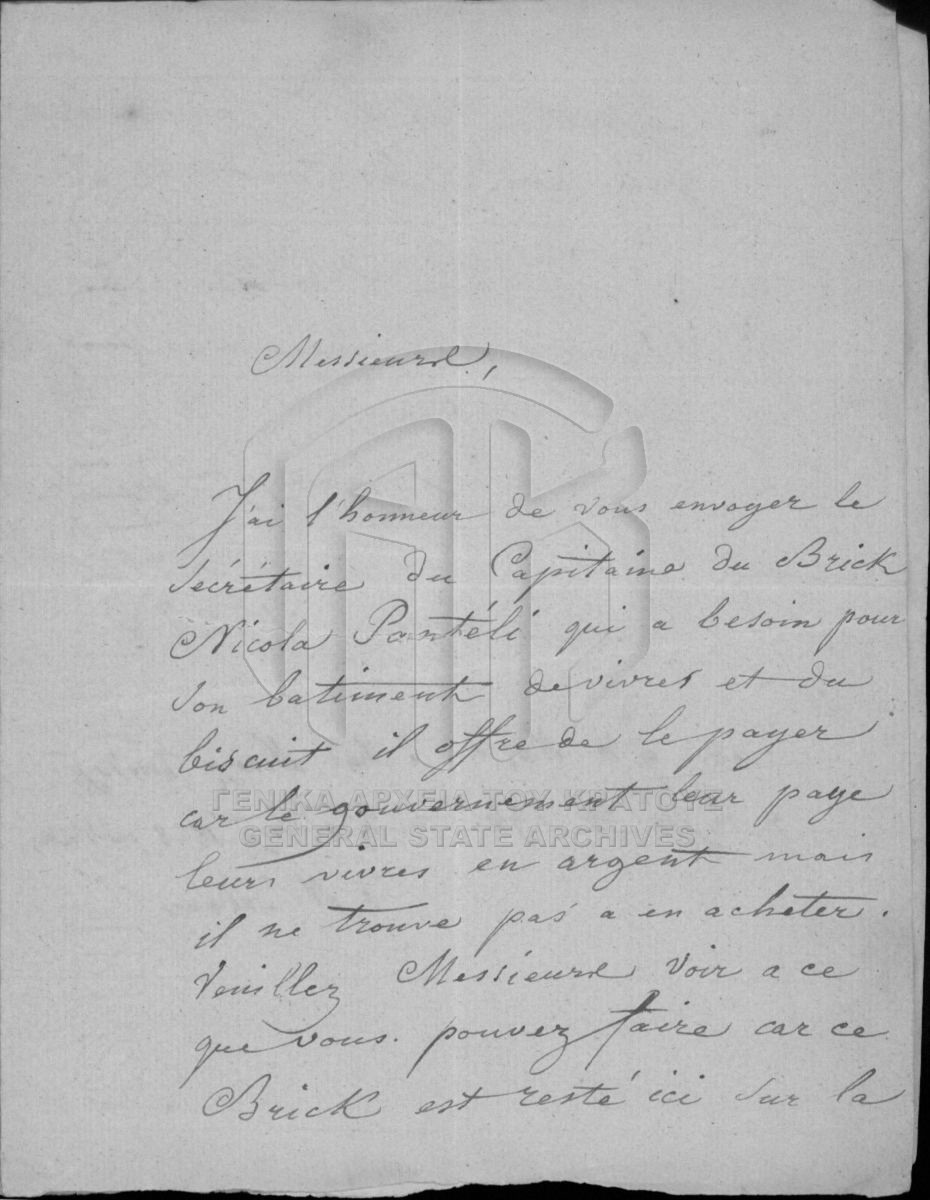 Messieurs,
J'ai l'honneur de vous envoyer le
sécrétaire du Capitaine du Brick
Nicola Pantéli qui a besoin pour
son batiment de vivres et du
biscuit il offre de le payer
ΓΕΝΙΚΑ ΑΡΧΕΙΑ ΤΟΥ ΚΡΑΤΟΥΣ
car le gouvernement leur paye
GENERAL STATE ARCHIVES
leurs vivres en argent mais
il ne trouve pas a en acheter.
Veuillez Messieurs voir a ce
que vous pouvez faire car ce
Brick est resté ici sur la